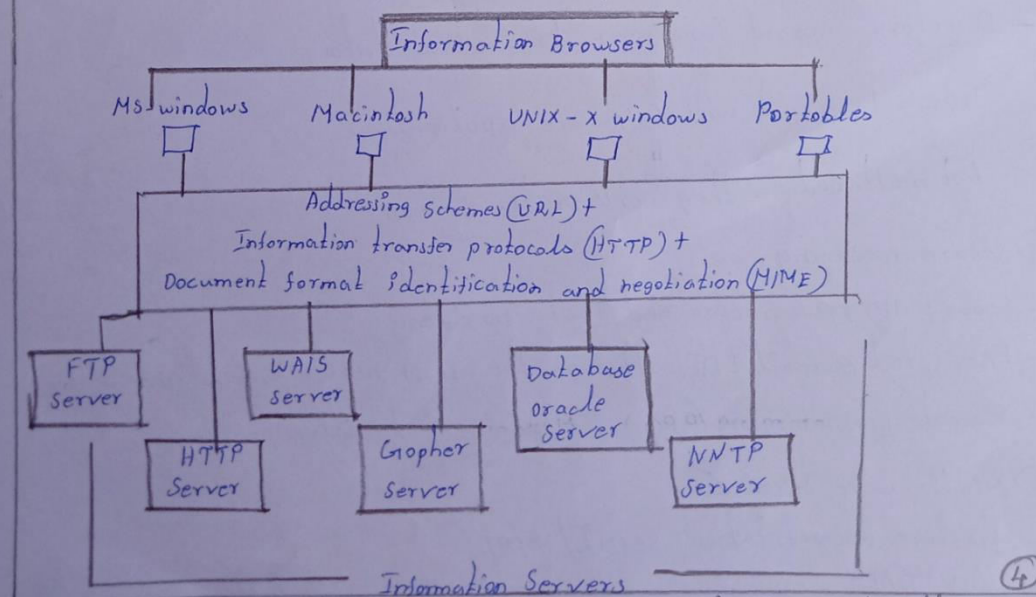 Information Browsers
Ms-windows Macintosh UNIX - X windows Portobles
Addressing schemes (URL) +
Information transfer protocols (HTTP) +
Document format identification and negotiation (MIME)
FTP
server
WAIS
server
Database
oracle
server
HTTP
Server
Gopher
server
NNTP
server
Information Servers
4